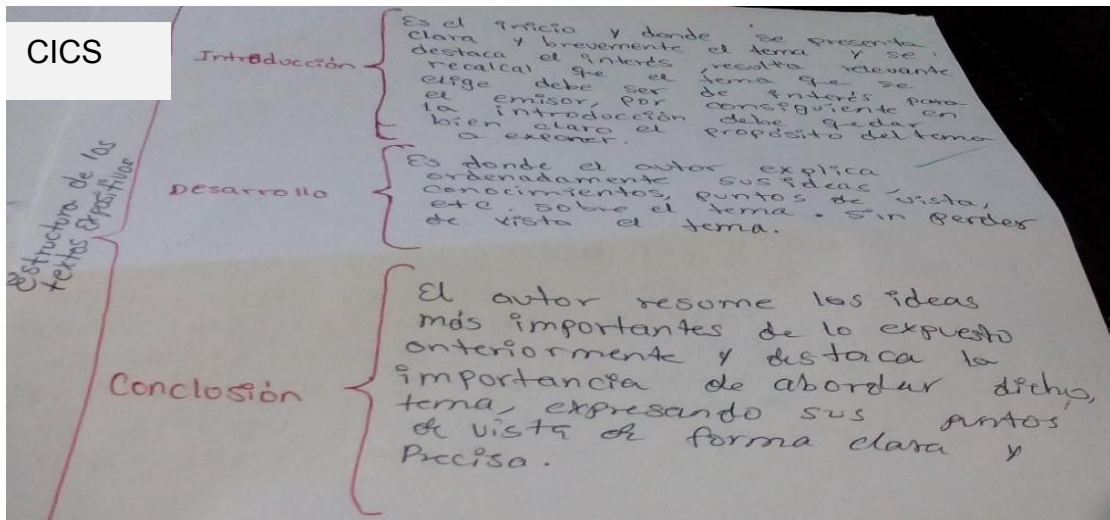 CICS
Estructura de los
textos Expositivos
Introducción
Es el inicio y donde se presenta
clara y brevemente el tema y se
destaca el interés, resulta relevante
recalcal que el tema que se
elige debe ser de interés para
el emisor, por consiguiente en
la introducción debe quedar
bien claro el propósito del tema
a exponer.
Desarrollo
Es donde el autor explica
ordenadamente sus ideas,
conocimientos, puntos de vista,
etc. sobre el tema. sin perder
de vista el tema.
Conclosión
El autor resome los ideas
más importantes de lo expuesto
anteriormente y destaca la
importancia de abordar dicho,
tema, expresando sus puntos
de vista de forma clara y
Precisa.